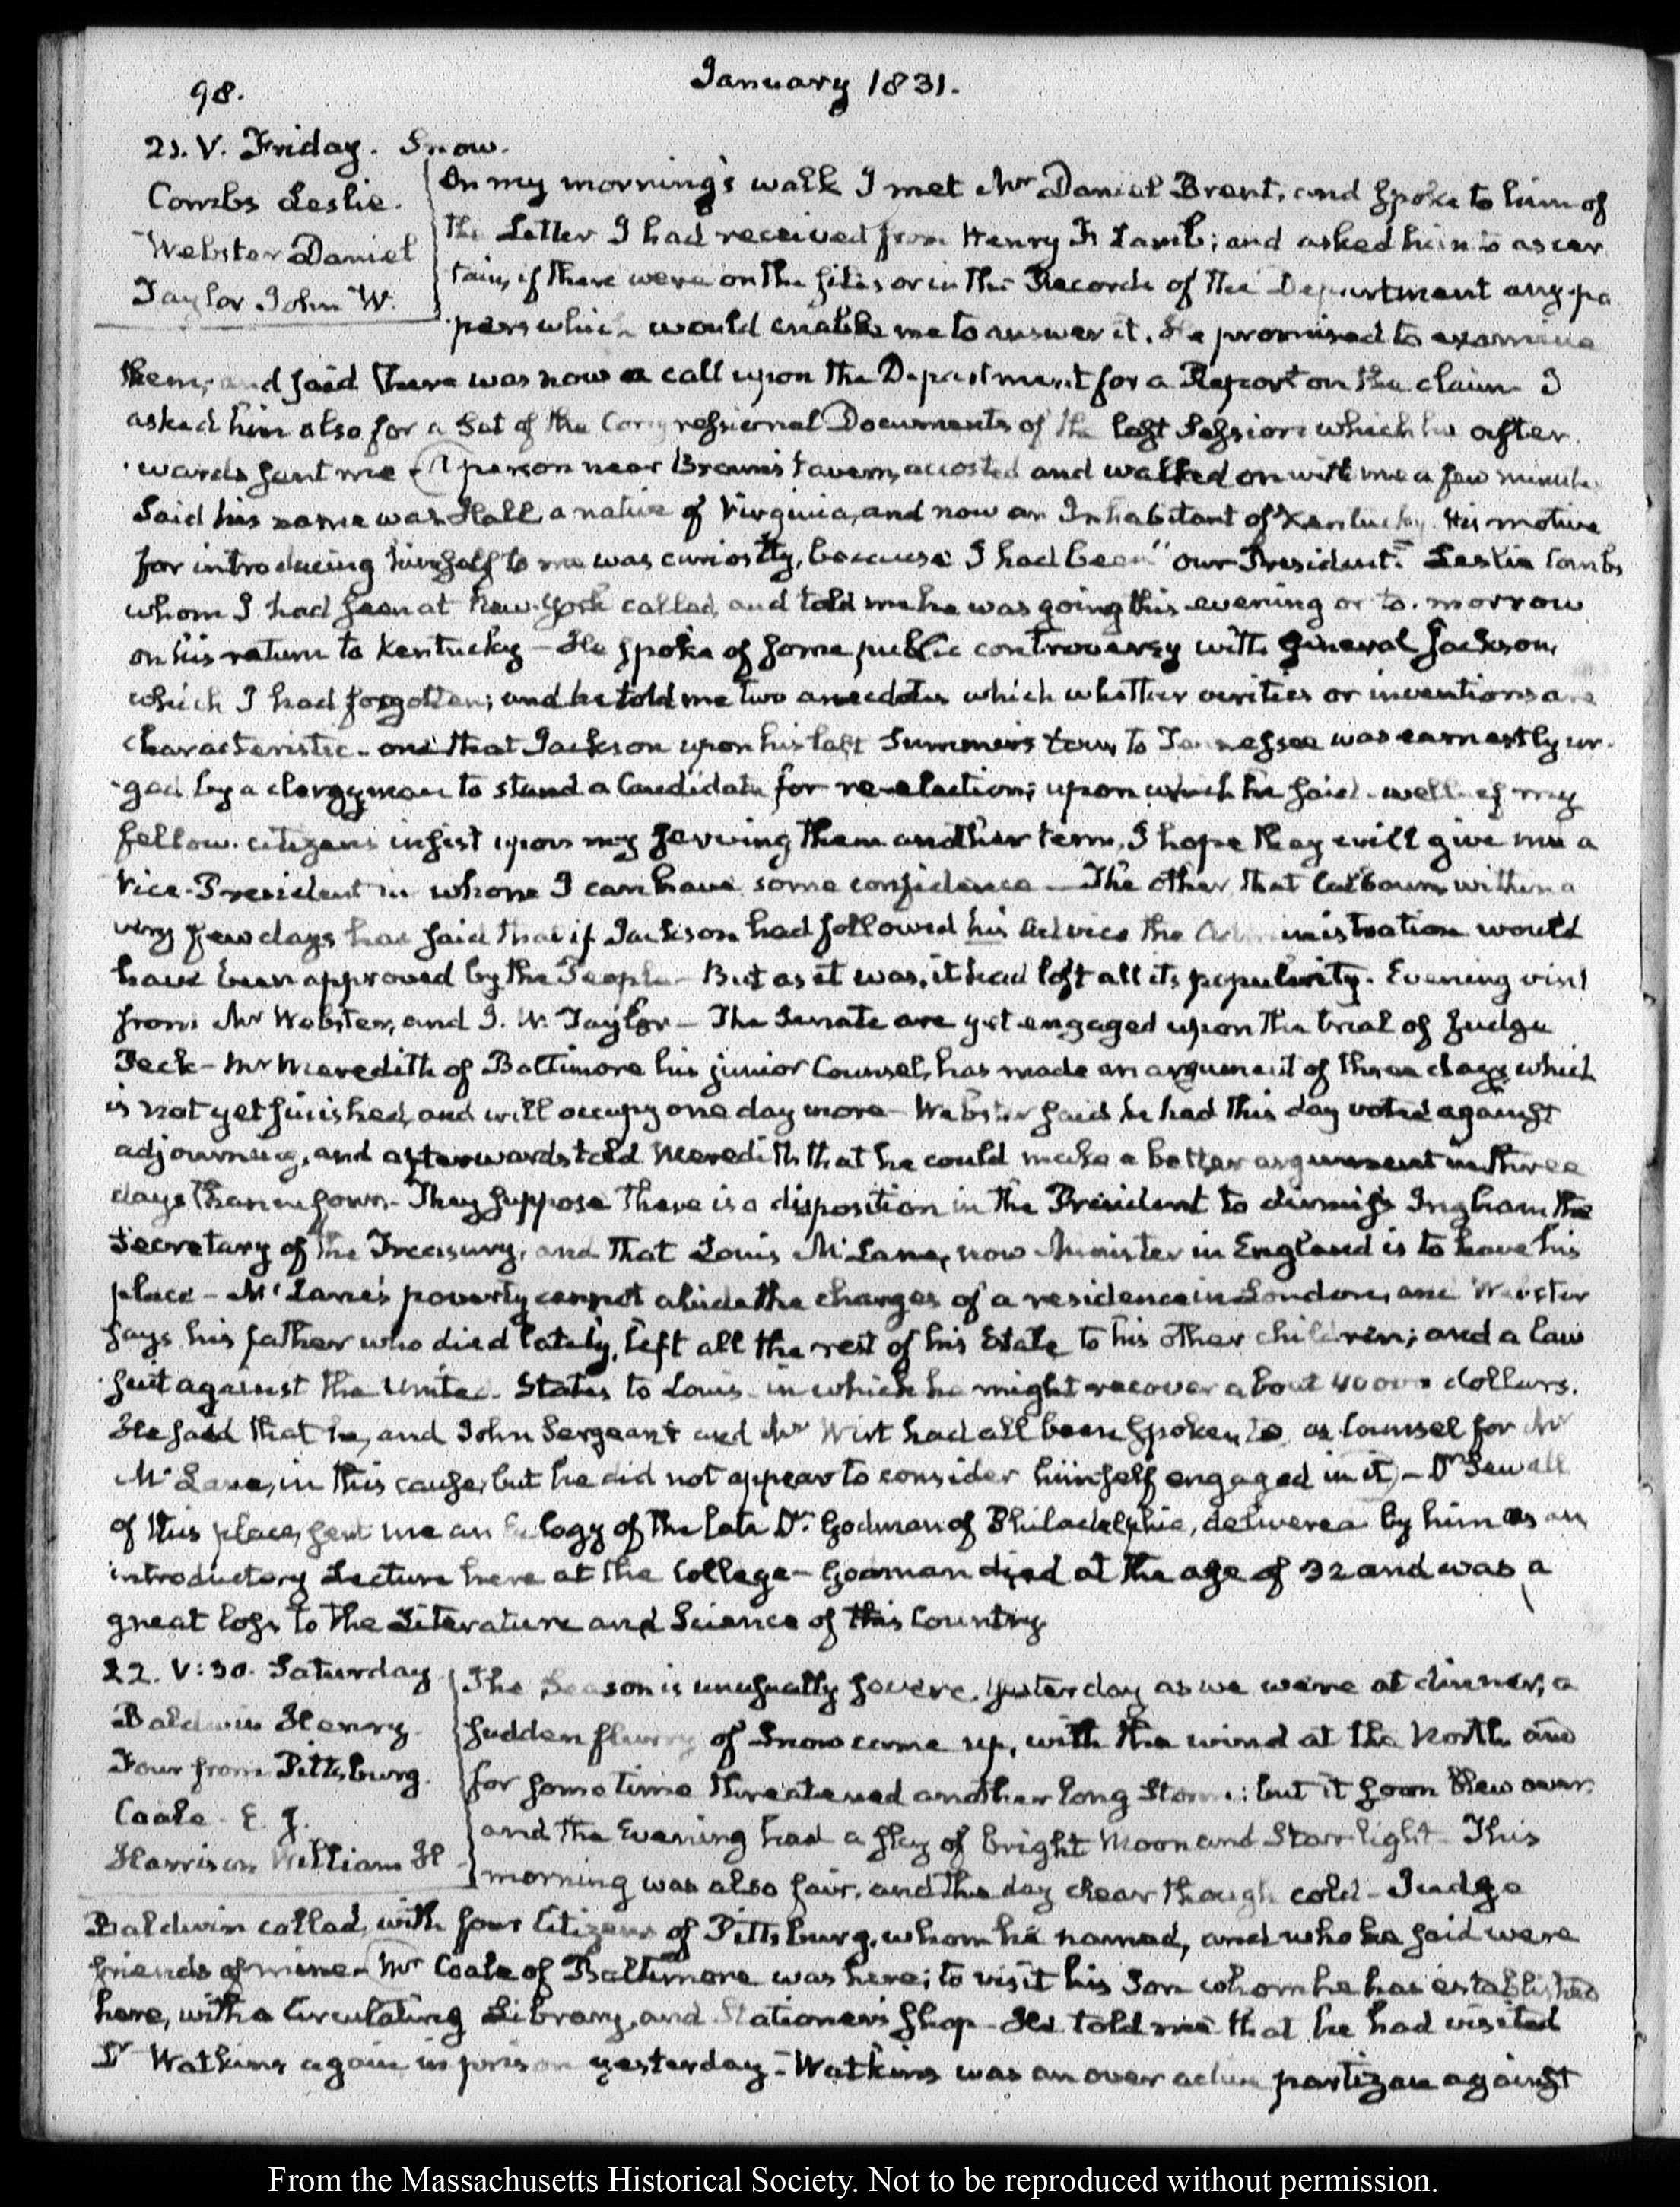 98.
January 1831.
21. V. Friday. Snow.
Combs Leslie.
Webster Daniel
Taylor John W.
On my morning's walk I met Mr Daniel Brent, and spoke to him of
the Letter I had received from Henry F. Lamb; and asked him to ascer
tain, if there were on the files or in the Records of the Department any pa
-pers which would enable me to answer it. He promised to examine
them, and said there was now a call upon the Department for a Report on the claim I
asked him also for a Set of the Congressional Documents of the last Session which he after-
-wards sent me - A person near Brown's tavern, accosted and walked on with me a few minutes
Said his name was Hall a native of Virginia, and now an Inhabitant of Kentucky. His motive
for introducing himself to me was curiosity, because I had been "our President." Leslie Combs
whom I had seen at New-York called, and told me he was going this evening or to-morrow
on his return to Kentucky - He spoke of some public controversy with General Jackson,
which I had forgotten; and he told me two anecdotes which whether verities or inventions are
characteristic - one that Jackson upon his last Summer's tour to Tennessee was earnestly ur-
-ged by a clergyman to stand a Candidate for re-election; upon which he said - well if my
fellow-citizens insist upon my serving them another term, I hope they will give me a
Vice-President in whom I can have some confidence - The other that Calhoun within a
very few days has said that if Jackson had followed his advice the Administration would
have been approved by the People - But as it was, it had lost all its popularity. Evening visit
from Mr Webster, and J. W. Taylor - The Senate are yet engaged upon the trial of Judge
Peck - Mr Meredith of Baltimore his junior Counsel, has made an argument of three days which
is not yet finished, and will occupy one day more - Webster said he had this day voted against
adjourning, and afterwards told Meredith that he could make a better argument in three
days than in four. - They suppose there is a disposition in the President to dismiss Ingham the
Secretary of the Treasury, and that Louis McLane, now Minister in England is to have his
place - McLane's poverty cannot abide the charges of a residence in London, and Webster
says his father who died lately, left all the rest of his Estate to his other children; and a law
suit against the United States to Louis - in which he might recover about 40000 dollars.
He said that he, and John Sergeant and Mr Wirt had all been spoken to as Counsel for Mr
McLane, in this cause, but he did not appear to consider himself engaged in it, - Dr Sewall
of this place, sent me an Eulogy of the late Dr. Godman of Philadelphia, delivered by him as an
introductory Lecture here at the College - Godman died at the age of 32 and was a
great loss to the Literature and Science of this Country.
22. V:30. Saturday
Baldwin Henry.
Four from Pittsburg.
Coale. E. J.
Harrison William H
The Season is unusually severe. Yesterday as we were at dinner, a
sudden flurry of Snow came up, with the wind at the North and
for some time threatened another long Storm: but it soon blew over
and the Evening had a sky of bright Moon and Starr light - This
morning was also fair, and the day clear though cold - Judge
Baldwin called, with four Citizens of Pittsburg, whom he named, and who he said were
friends of mine - Mr Coale of Baltimore was here; to visit his Son whom he has established
here, with a Circulating Library, and Stationer's shop - He told me that he had visited
Dr Watkins again in prison yesterday - Watkins was an over active partizan against
From the Massachusetts Historical Society. Not to be reproduced without permission.